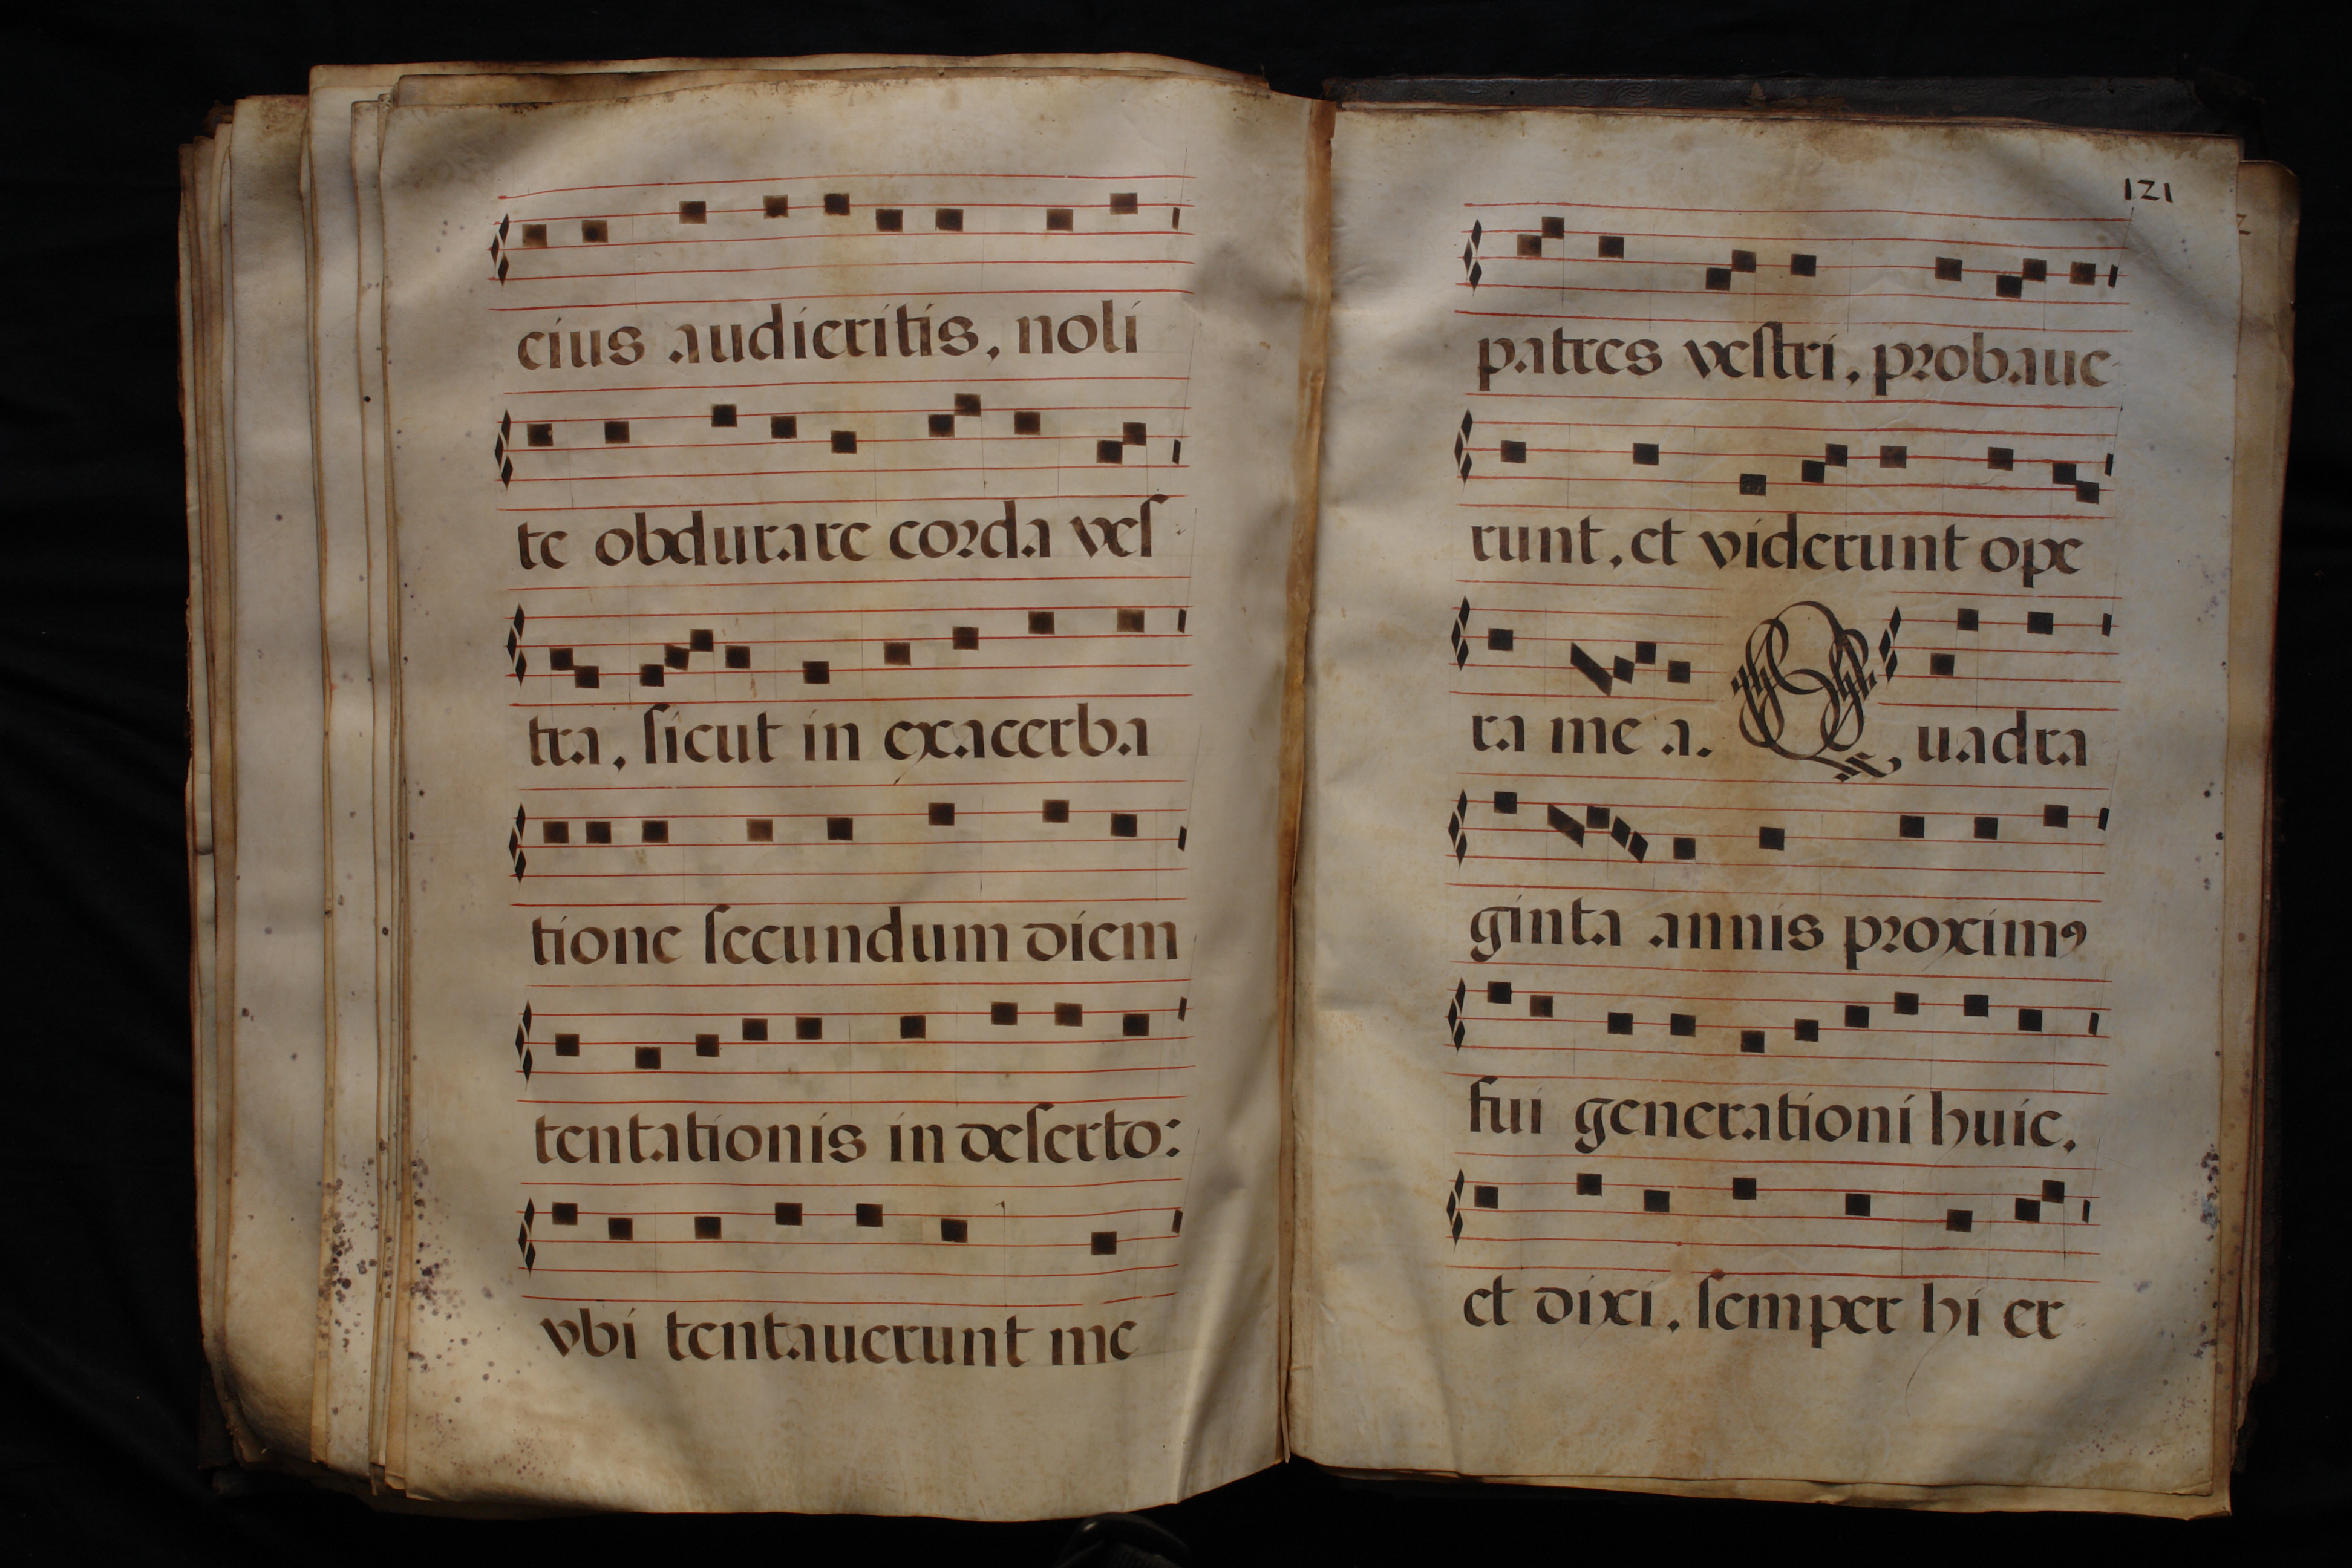 eius audieritis, noli
te obdurare corda veſ
tra, ſicut in exacerba
tione ſecundum diem
tentationis in deſerto:
vbi tentauerunt me
121
patres veſtri, probaue
runt, et viderunt ope
ra me a. Quadra
ginta annis proximꝰ
fui generationi huic,
et dixi, ſemper hi er